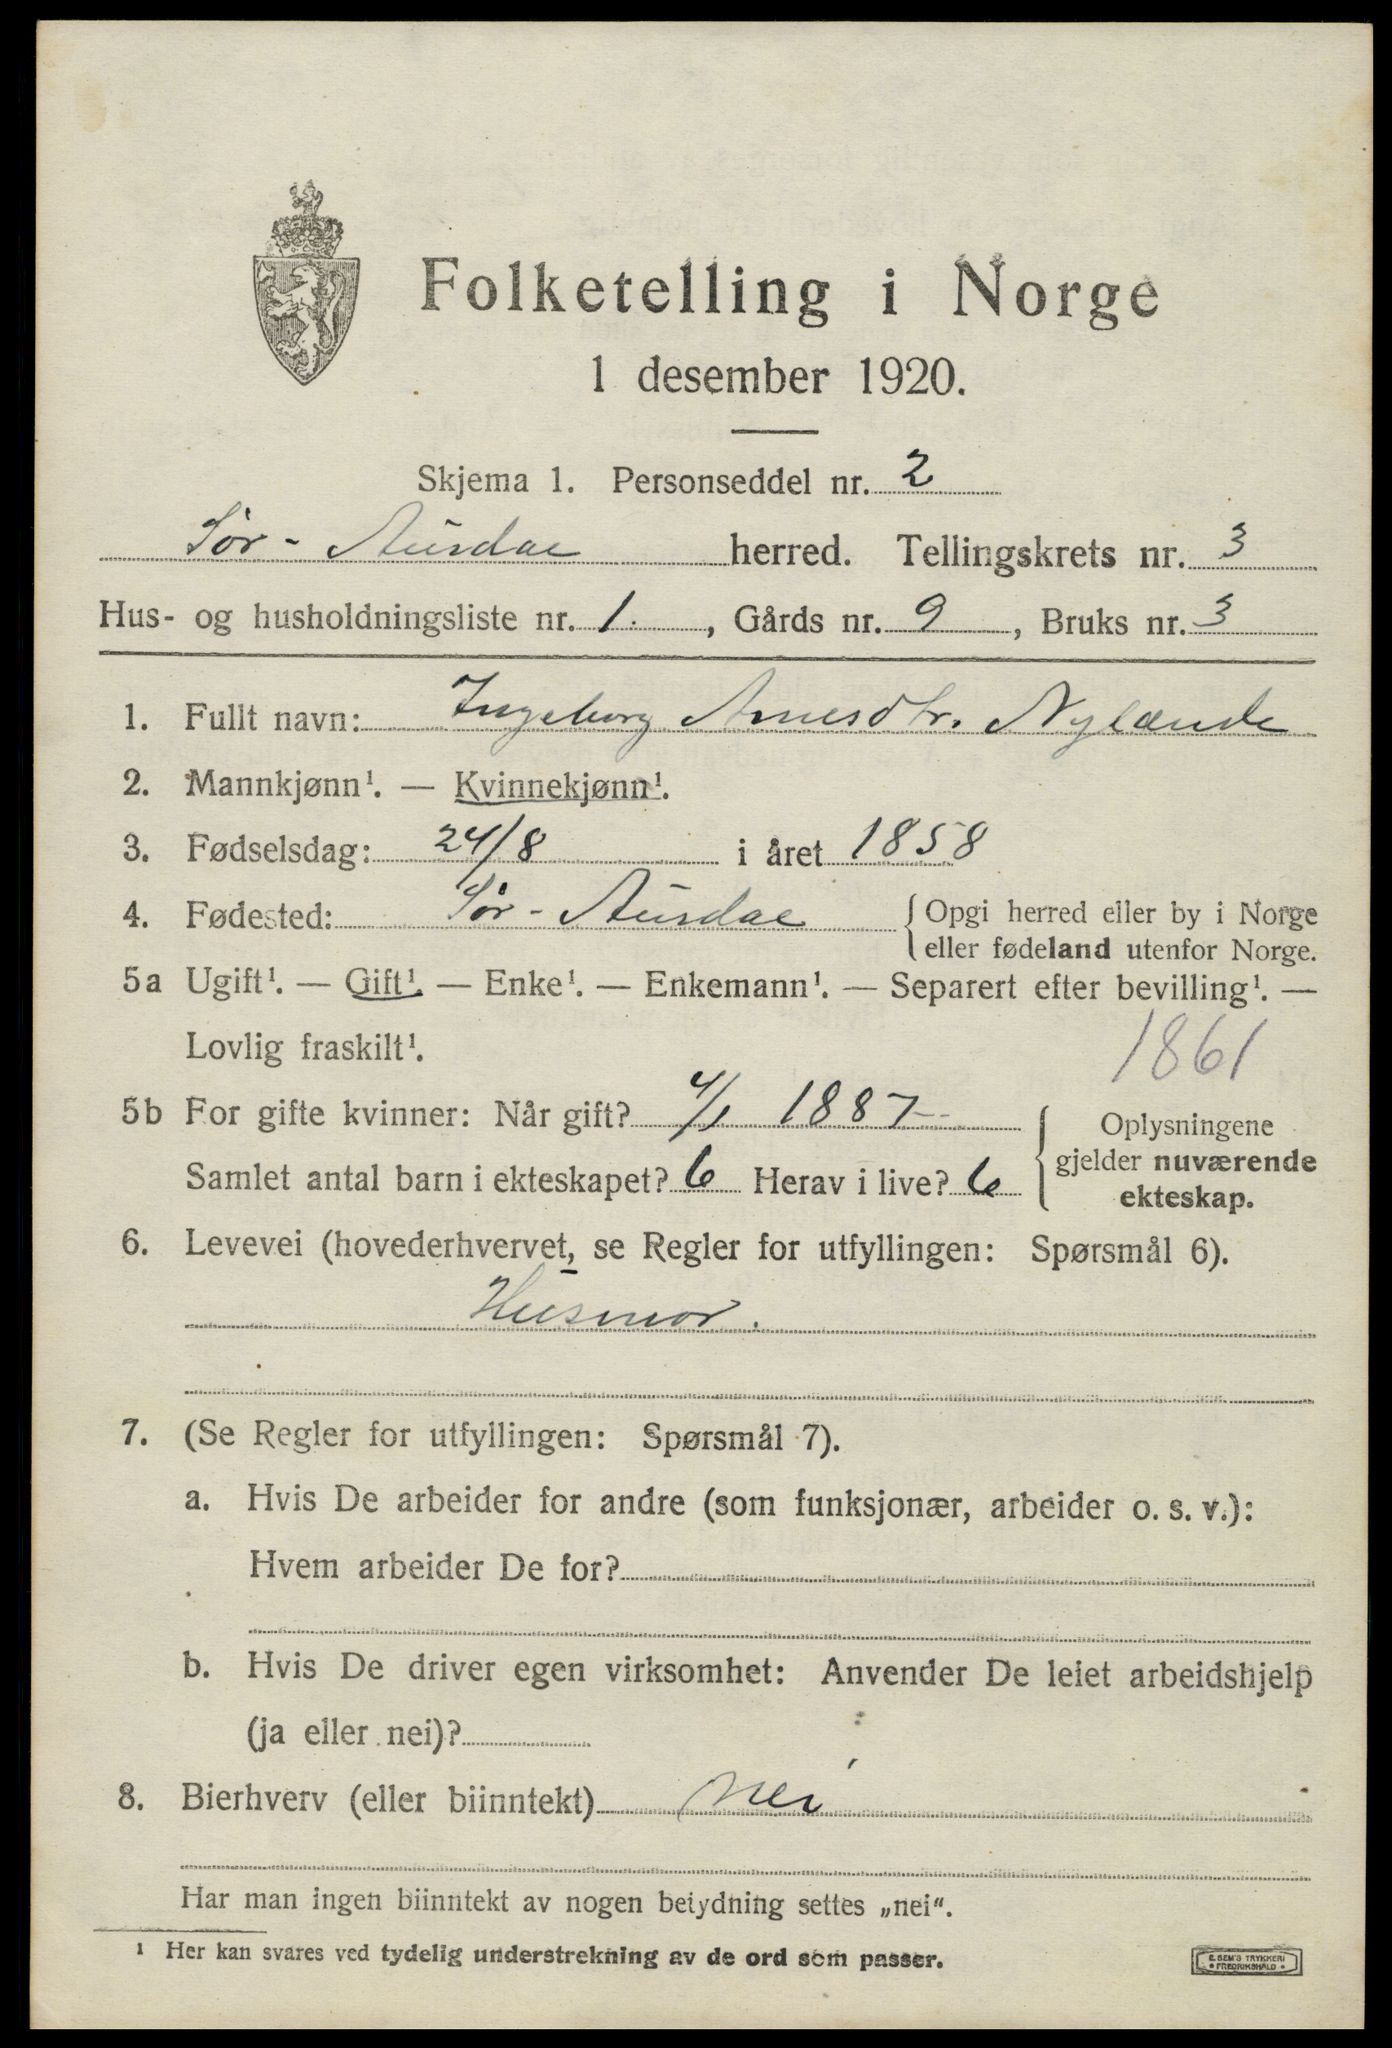 Folketelling i Norge
1 desember 1920.
Skjema 1. Personseddel nr. 2
Sør-Aurdal herred. Tellingskrets nr. 3
Hus- og husholdningsliste nr. 1., Gårds nr. 9, Bruks nr. 3
1. Fullt navn: Ingeborg Arnesdtr. Nylænde
2. Mannkjønn¹. — Kvinnekjønn¹.
3. Fødselsdag: 24/8 i året 1858
4. Fødested: Sør-Aurdal {Opgi herred eller by i Norge
eller fødeland utenfor Norge.
5a Ugift¹. — Gift¹. — Enke¹. — Enkemann¹. — Separert efter bevilling¹. —
Lovlig fraskilt¹.
1861
5b For gifte kvinner: Når gift? 4/1 1887 { Oplysningene
gjelder nuværende
ekteskap.
Samlet antal barn i ekteskapet? 6 Herav i live? 6
6. Levevei (hovederhvervet, se Regler for utfyllingen: Spørsmål 6).
Husmor.
7. (Se Regler for utfyllingen: Spørsmål 7).
a. Hvis De arbeider for andre (som funksjonær, arbeider o. s. v.):
Hvem arbeider De for?
b. Hvis De driver egen virksomhet: Anvender De leiet arbeidshjelp
(ja eller nei)?
8. Bierhverv (eller biinntekt) nei
Har man ingen biinntekt av nogen betydning settes „nei“.
¹ Her kan svares ved tydelig understrekning av de ord som passer.
E. SEM'S TRYKKERI
FREDRIKSHALD